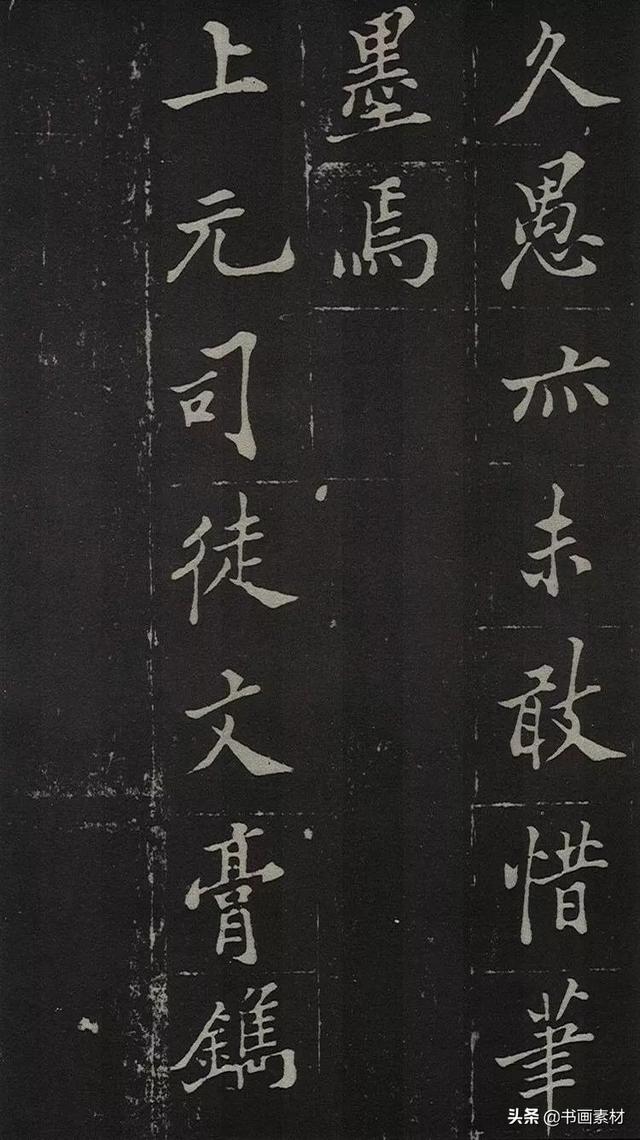 久愚亦未敢惜筆
墨焉
上元司徒文膏鐫
头条@书画素材